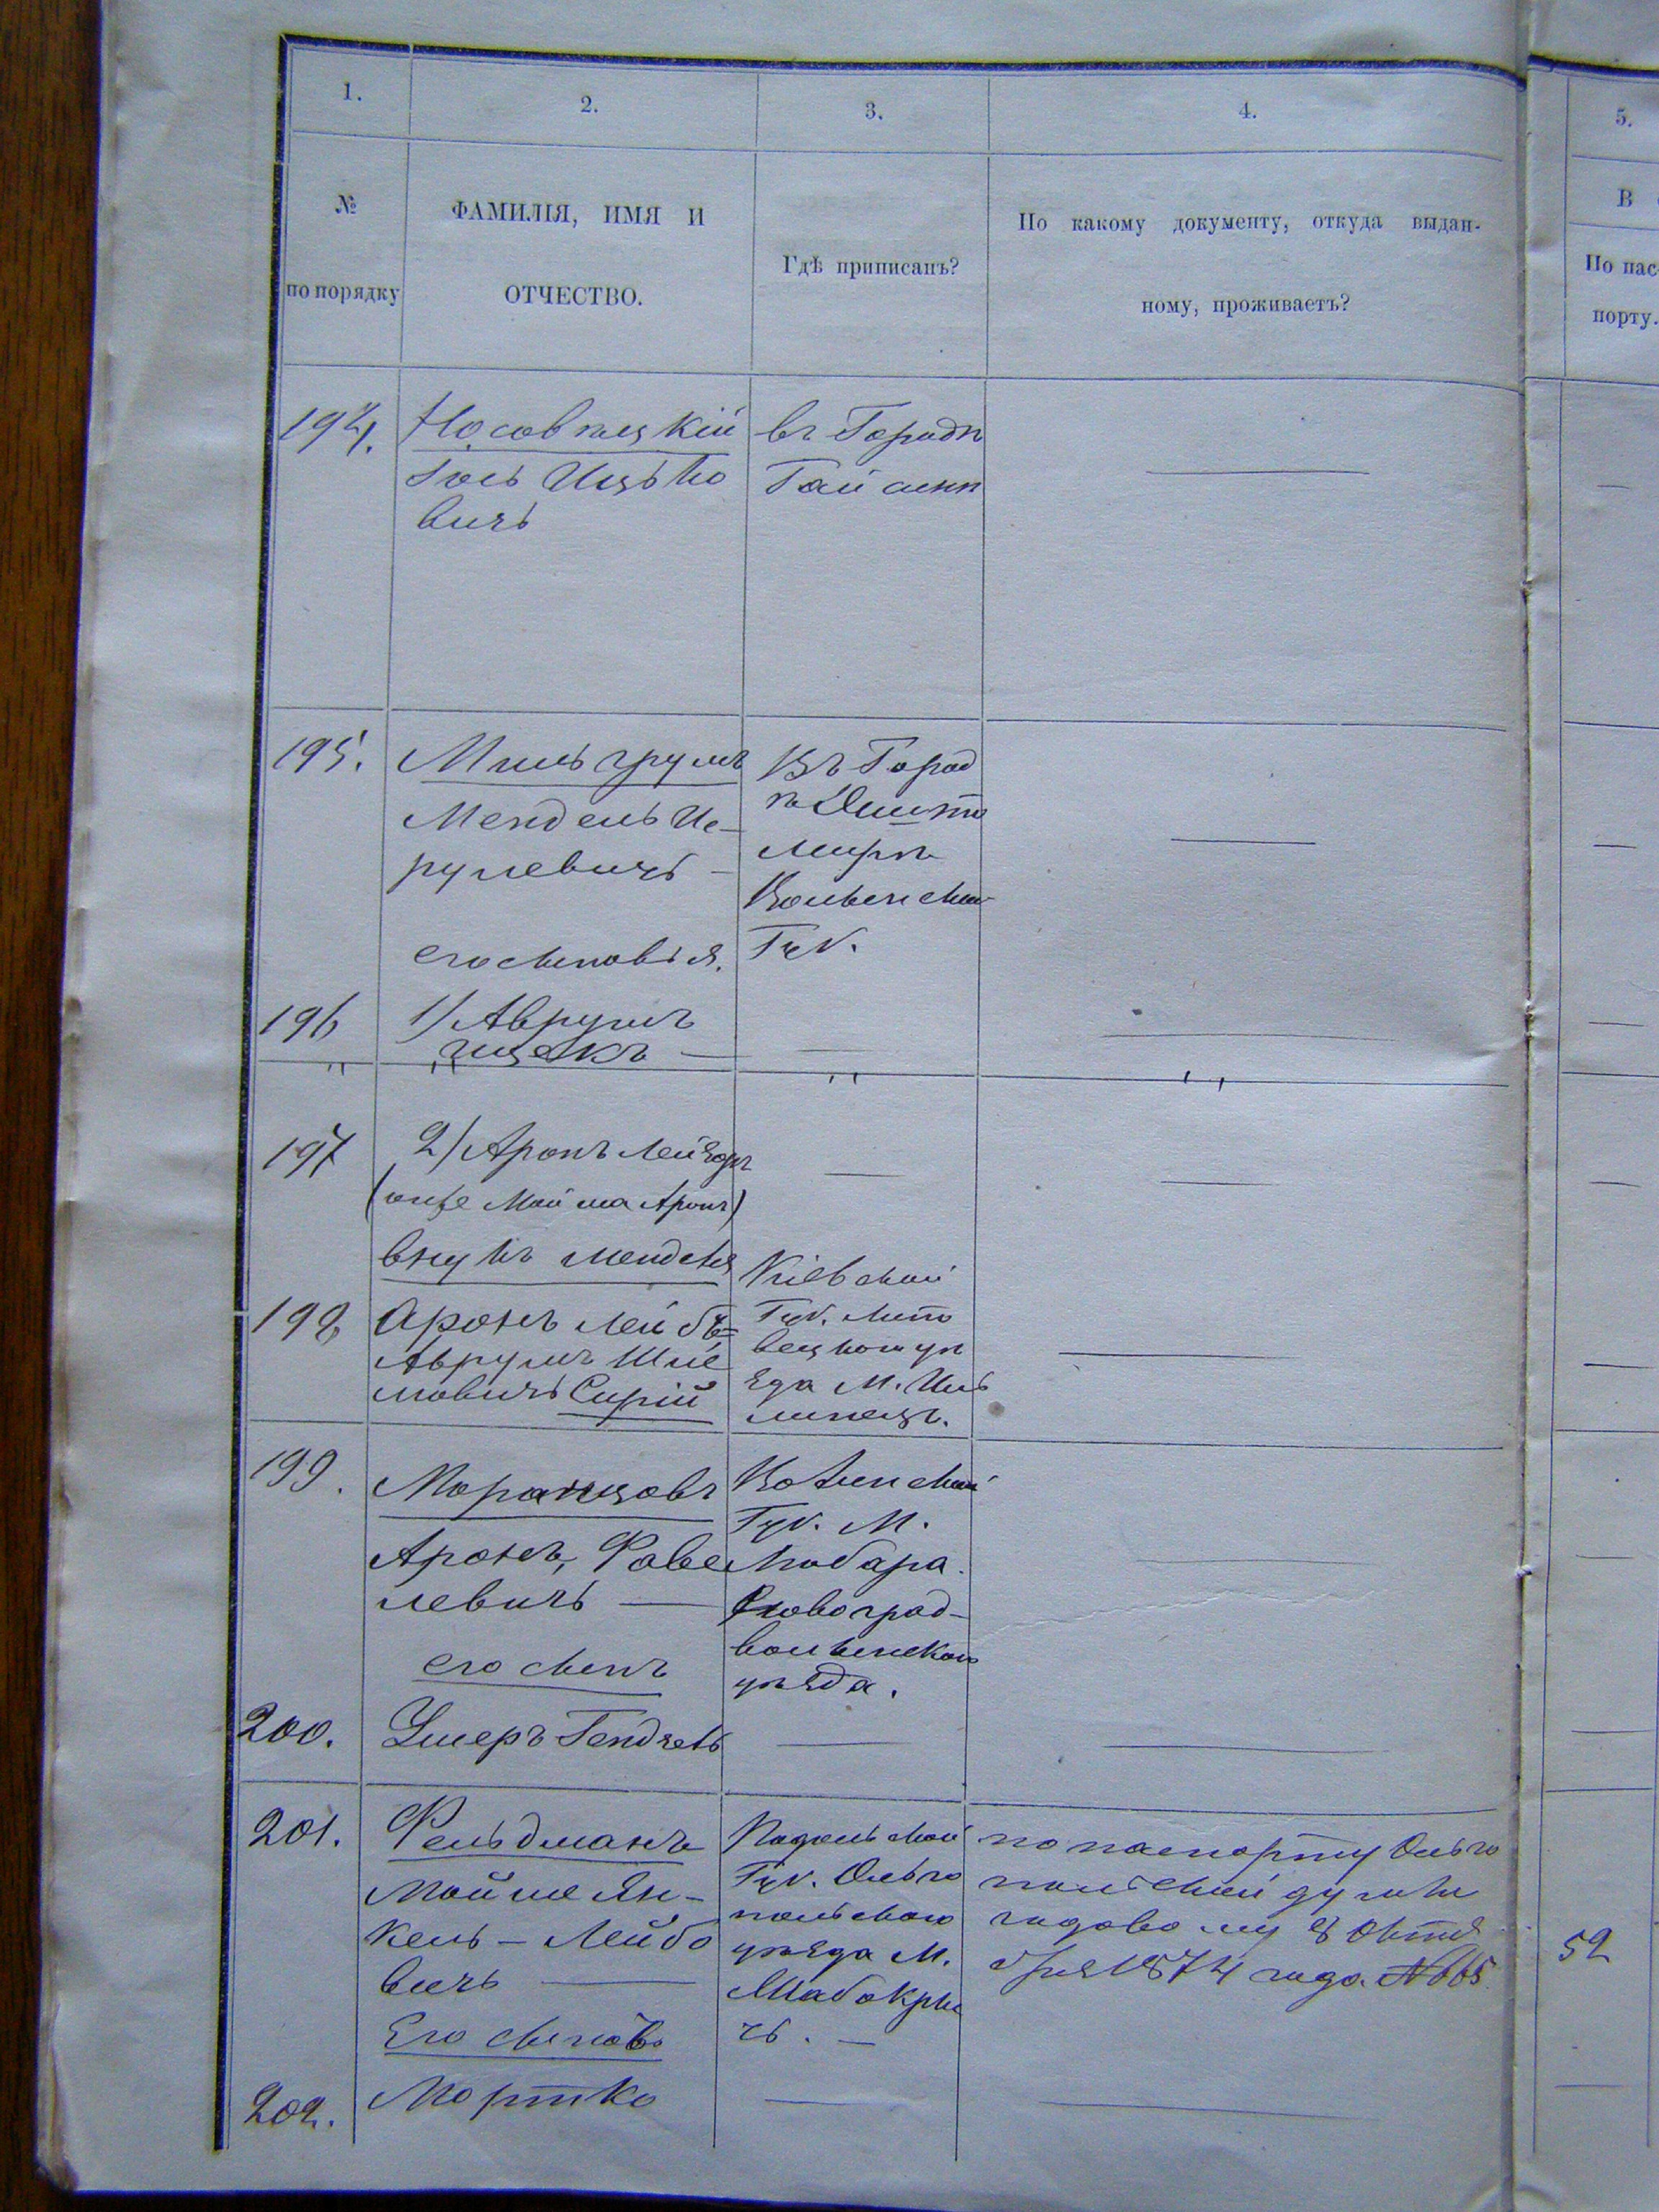 1.
2.
3.
4.
5.
№
по порядку
ФАМИЛІЯ, ИМЯ И
ОТЧЕСТВО.
Гдѣ приписанъ?
По какому документу, откуда выдан-
ному, проживаетъ?
В
По пас-
порту.
194.
Носовецкій
Іось Ицько
вичъ
въ Городѣ
Гайсинѣ
195.
Мильгрумъ
Мендель Ис-
рулевичъ
Въ Город
ѣ Житo
мирѣ
Волынской
Губ.
его сыновья.
196
1) Аврумъ
Ицекъ
197
2) Аронъ Лейзоръ
(онже Мойша Аронъ)
внукъ Менделя
198
Аронъ Лейбъ=
Аврумъ Шле
мовичъ Сирій
Кіевской
Губ. Липо
вецкого уѣ
зда М. Иль
линецъ.
199.
Моранцовъ
Аронъ, Фаве
левичъ
Волынской
Губ. М.
Любара.
Новоград-
волынского
уѣзда.
его сынъ
200.
Умеръ
201.
Фельдманъ
Мойше Ян-
кель - Лейбо
вичъ
Подольской
Губ. Ольго
польского
уѣзда М.
Мабокры
чъ.
по паспорту Ольго
польской думы
годовому 8 Октя
бря 1874 года №665
52
Его сыновь
202.
Мортко